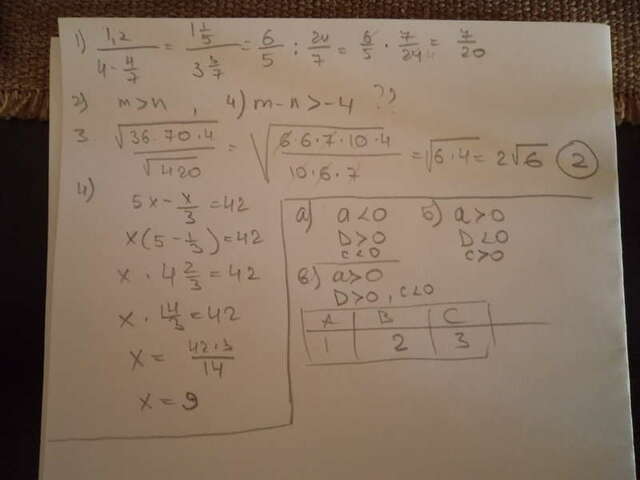 1) 1,2 / (4 - 4/7) = 1 1/5 / 3 3/7 = 6/5 : 24/7 = 6/5 · 7/24 = 7/20
2) m>n , 4) m-n>-4 ??
3. √(36·70·4) / √420 = √(6·6·7·10·4 / 10·6·7) = √(6·4) = 2√6 (2)
4)
5x - x/3 = 42
x(5 - 1/3) = 42
x · 4 2/3 = 42
x · 14/3 = 42
x = 42·3 / 14
x = 9
а) a<0
D>0
c<0
б) a>0
D<0
c>0
в) a>0
D>0, c<0
A B C
1 2 3